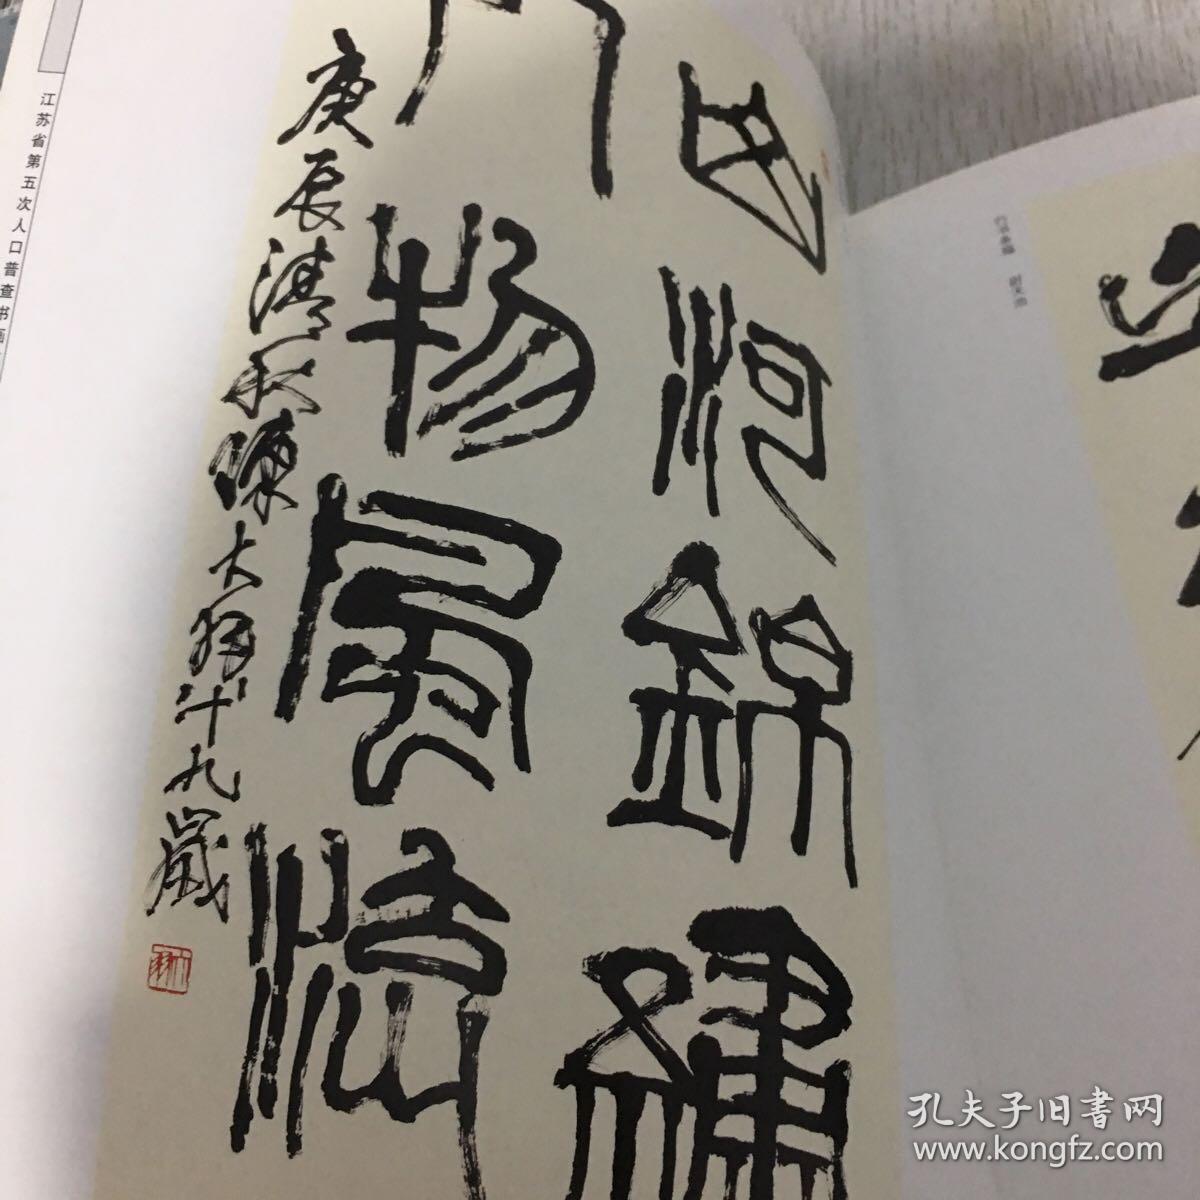 山河錦繡
人物風流
庚辰清秋陳大羽八十九歲
江苏省第五次人口普查书画
孔夫子旧書网
www.kongfz.com